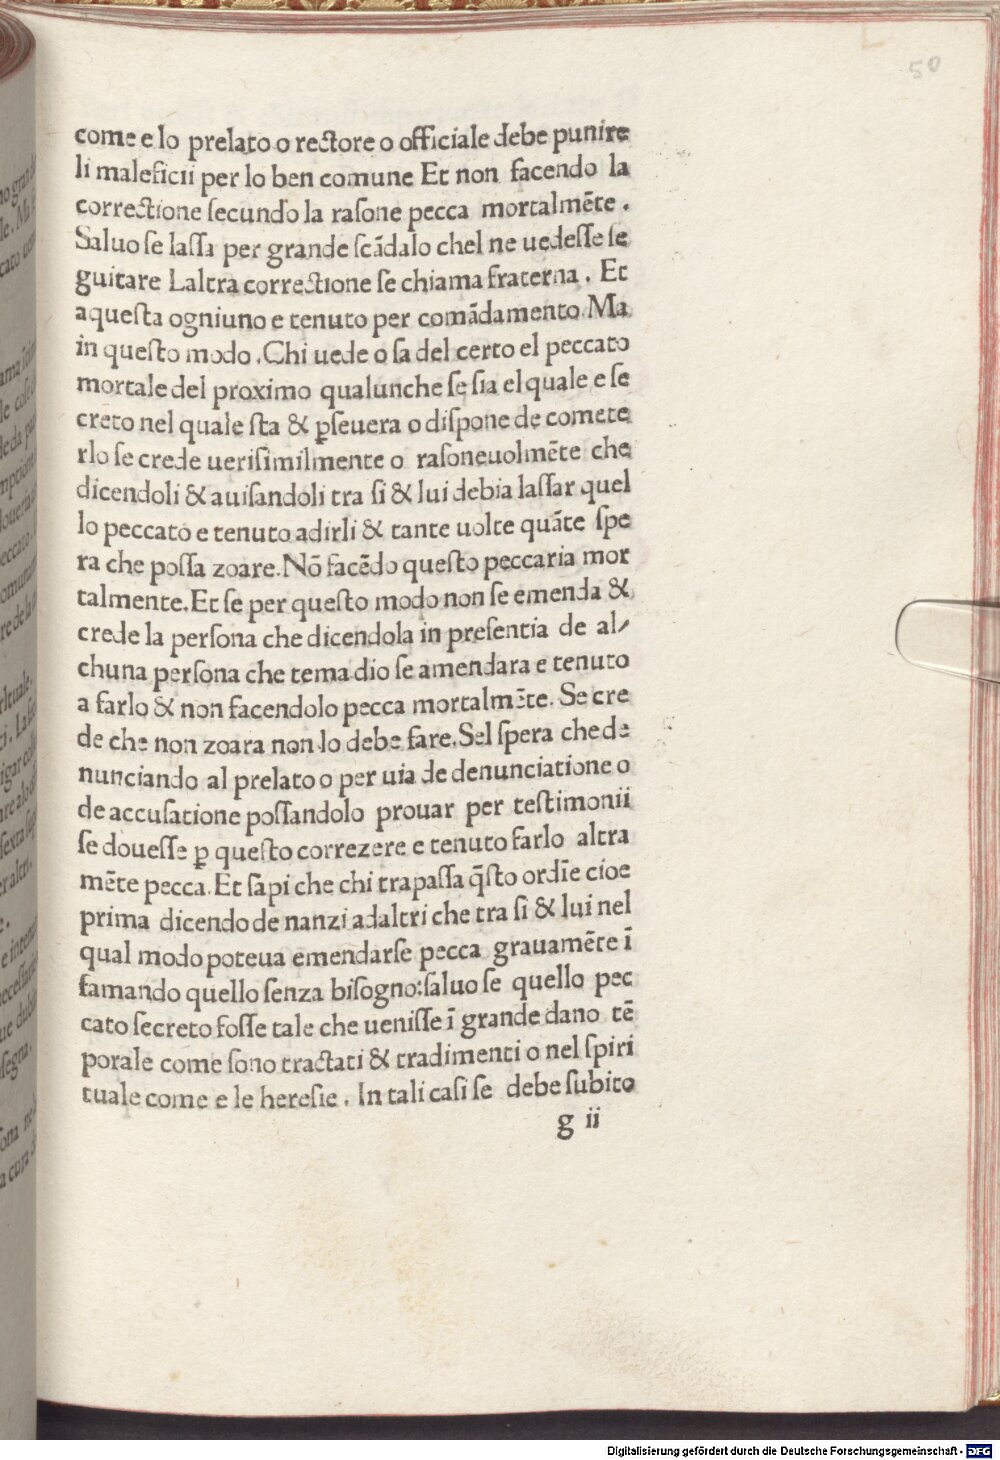 50
come e lo prelato o rectore o officiale debe punire
li maleficii per lo ben comune Et non facendo la
correctione ſecundo la raſone pecca mortalmēte .
Saluo ſe laſſa per grande ſcādalo chel ne uedeſſe ſe
guitare Laltra correctione ſe chiama fraterna . Et
a queſta ogniuno e tenuto per comādamento. Ma
in queſto modo . Chi uede o ſa del certo el peccato
mortale del proximo qualunche ſe ſia el quale e ſe
creto nel quale ſta & ꝑſeuera o diſpone de comete
rlo ſe crede ueriſimilmente o raſoneuolmēte che
dicendoli & auiſandoli tra ſi & lui debia laſſar quel
lo peccato e tenuto adirli & tante uolte quāte ſpe
ra che poſſa zoare. Nō facēdo queſto peccaria mor
talmente. Et ſe per queſto modo non ſe emenda &
crede la perſona che dicendola in preſentia de al⸗
chuna perſona che tema dio ſe amendara e tenuto
a farlo & non facendolo pecca mortalmēte. Se cre
de che non zoara non lo debe fare. Sel ſpera che de
nunciando al prelato o per uia de denunciatione o
de accuſatione poſſandolo prouar per teſtimonii
ſe doueſſe ꝑ queſto correzere e tenuto farlo altra
mēte pecca. Et ſapi che chi trapaſſa q̄ſto ordīe cioe
prima dicendo de nanzi adaltri che tra ſi & lui nel
qual modo poteua emendarſe pecca grauamēte ī
famando quello ſenza biſogno: ſaluo ſe quello pec
cato ſecreto foſſe tale che ueniſſe ī grande dano tē
porale come ſono tractati & tradimenti o nel ſpiri
tuale come e le hereſie . In tali caſi ſe debe ſubito
g ii
Digitalisierung gefördert durch die Deutsche Forschungsgemeinschaft - DFG